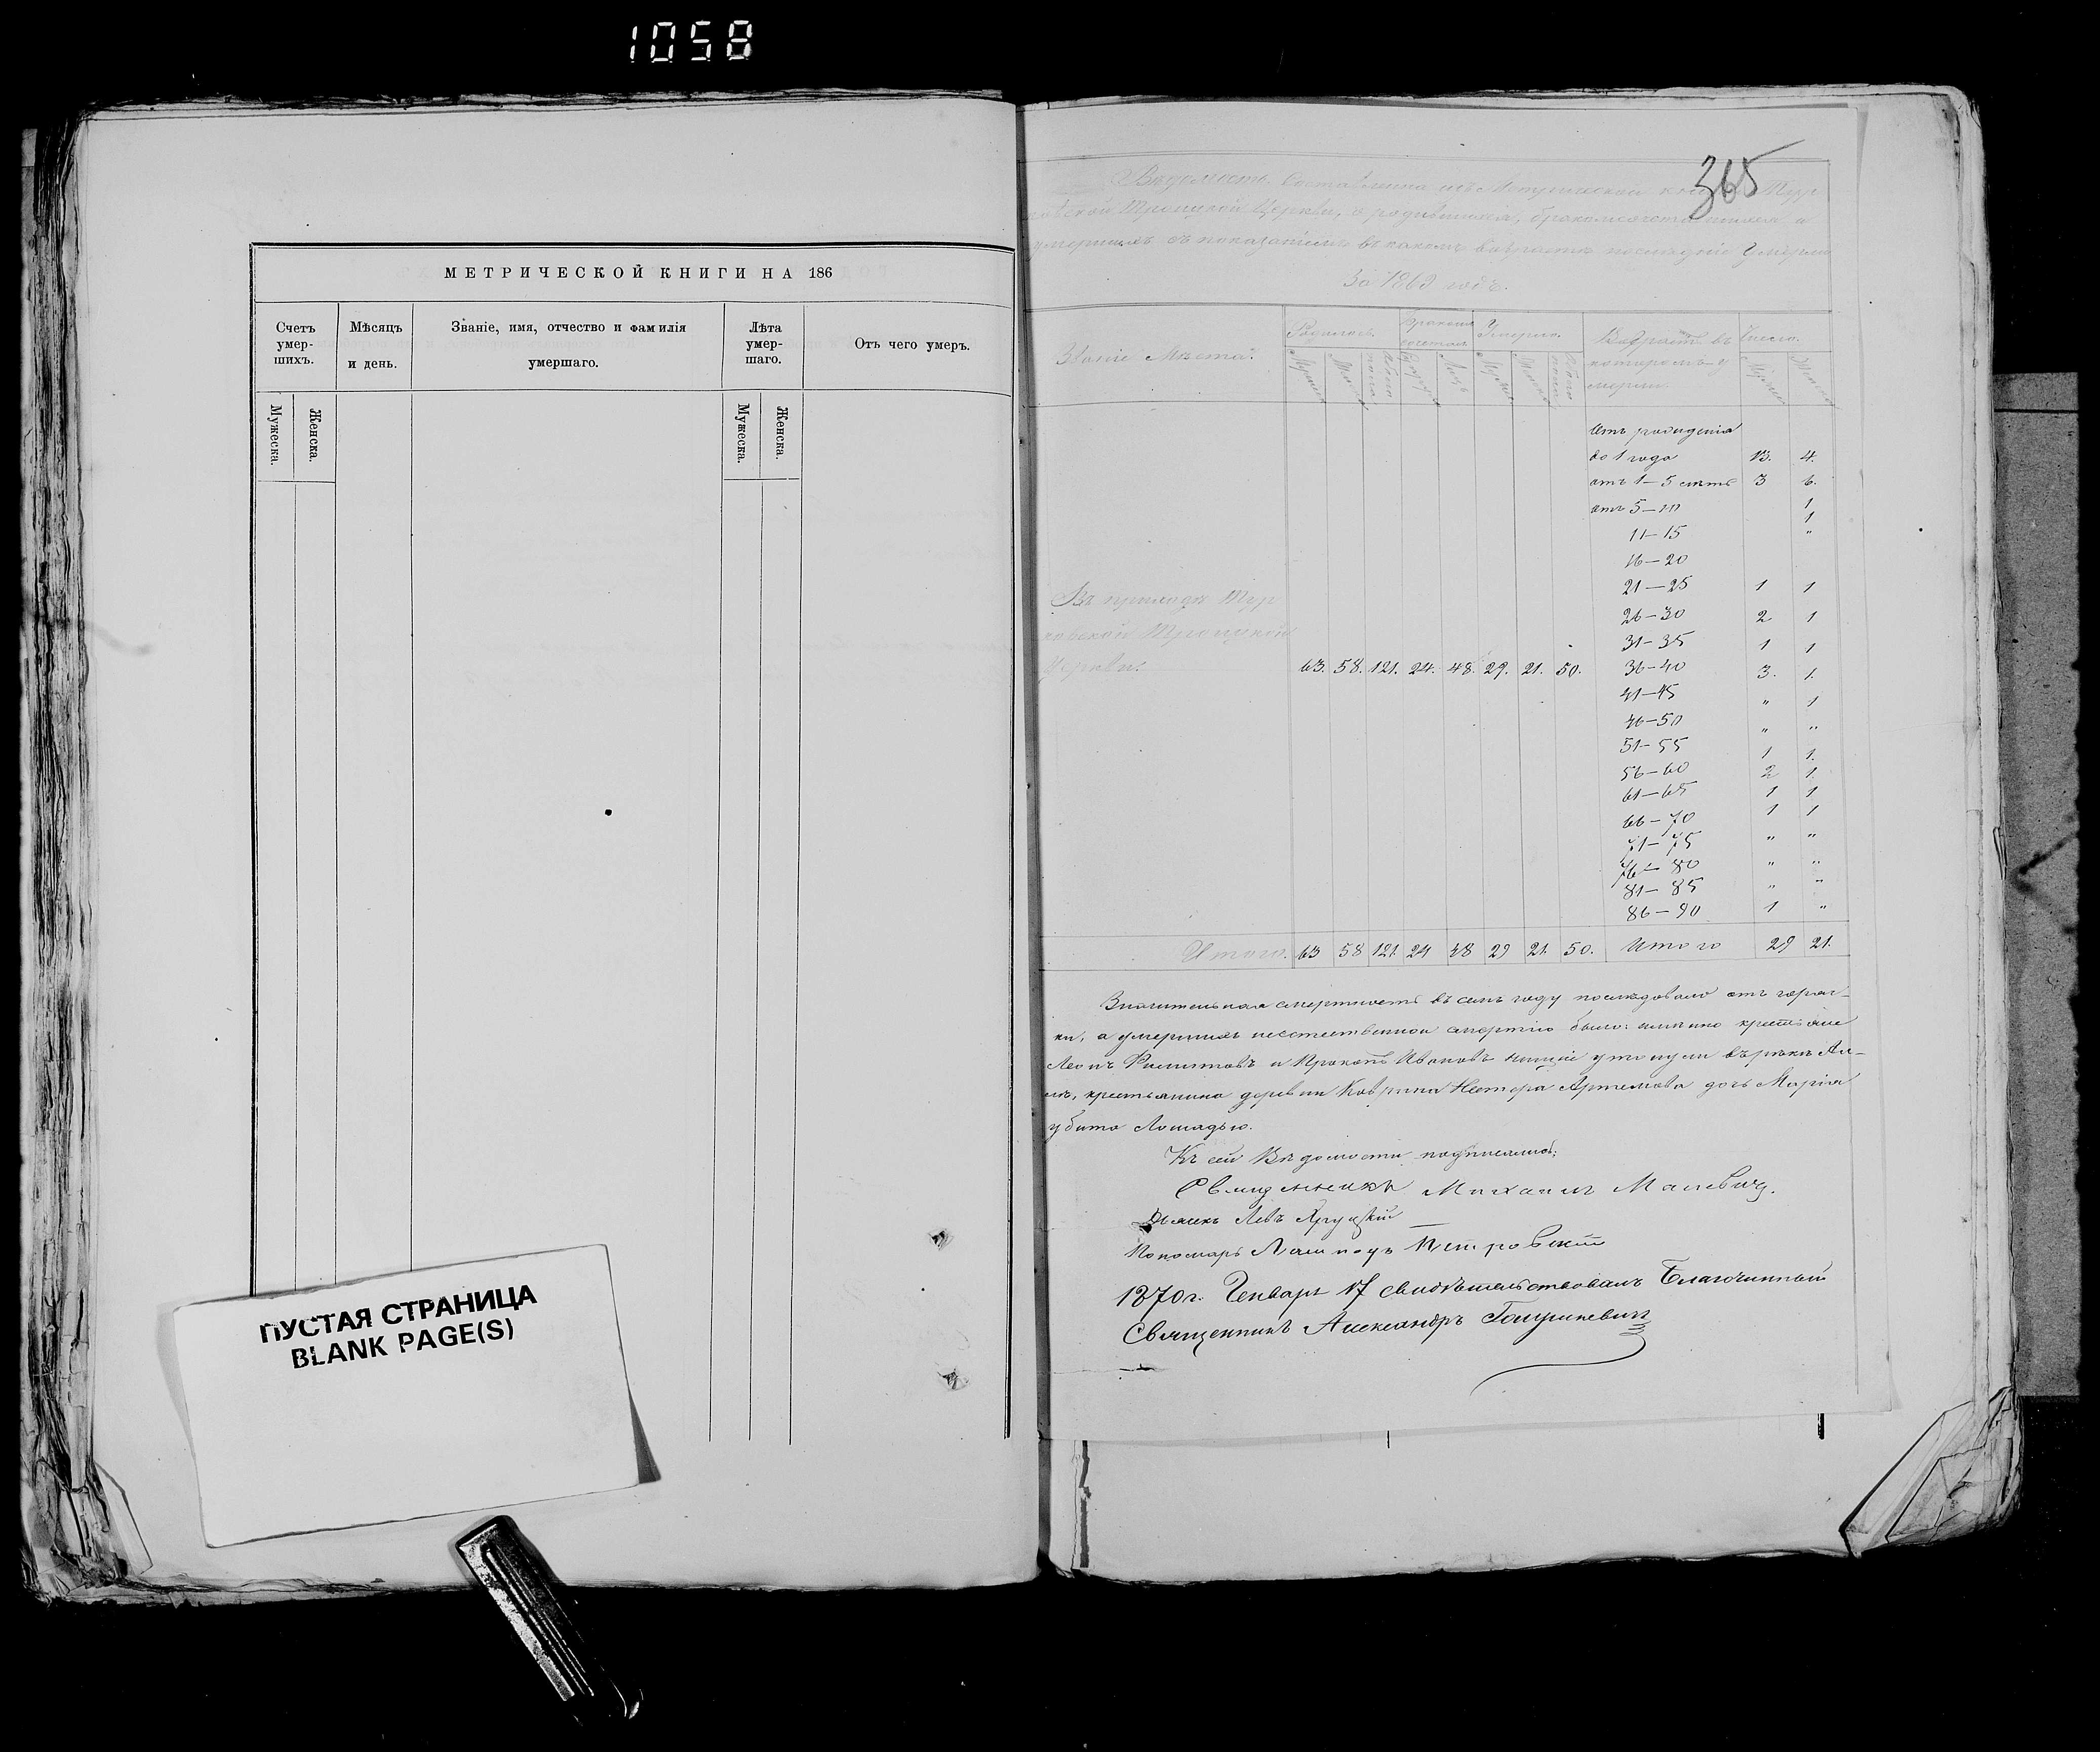 1058
МЕТРИЧЕСКОЙ КНИГИ НА 186
Счетъ умер- шихъ.
Мѣсяцъ и день.
Званіе, имя, отчество и фамилія умершаго.
Лѣта умер- шаго.
Отъ чего умеръ.
Мужеска. Женска. Мужеска. Женска.
ПУСТАЯ СТРАНИЦА
BLANK PAGE(S)
365
Вѣдомость составлена изъ Метрической
Троицкой Церкви, о родившихся, бракомъ и
умершихъ съ показаніемъ въ какомъ возрастѣ послѣдніе умерли
За 1869 годъ.
Званіе Мѣста.
Родилось. Умерло. Возрастъ въ которомъ умерли. Число.
Отъ рожденія
до 1 года 13. 4.
отъ 1—5 лѣтъ 3 6.
отъ 5—10 1
11—15 1
16—20 "
21—25 1 1
26—30 2 1
31—35 1 1
Въ приходѣ
Троицкой
Церкви. 63. 58. 121. 24. 48. 29. 21. 50. 36—40 3. 1.
41—45 " 1
46—50 " "
51—55 1 1.
56—60 2 1.
61—65 1 1
66—70 1 1
71—75 " "
76—80 " "
81—85 " "
86—90 1 "
Итого. 63 58 121. 24 48 29 21. 50. Итого 29 21.
Значительная смертность въ семъ году послѣдовала отъ горяч-
ки, а умершихъ неестественной смертію было: именно крестьяне
и Прокопъ Ивановъ утонули въ рѣкѣ
крестьянина деревни Нестера Артемова дочь Марія
убита Лошадью.
Къ сей Вѣдомости подписались:
Священникъ Михаилъ Малевич.
Дьячекъ Левъ
Пономарь Петровскій
1870 г. Генваря 17 свидѣтельствовалъ Благочинный
Священникъ Александръ